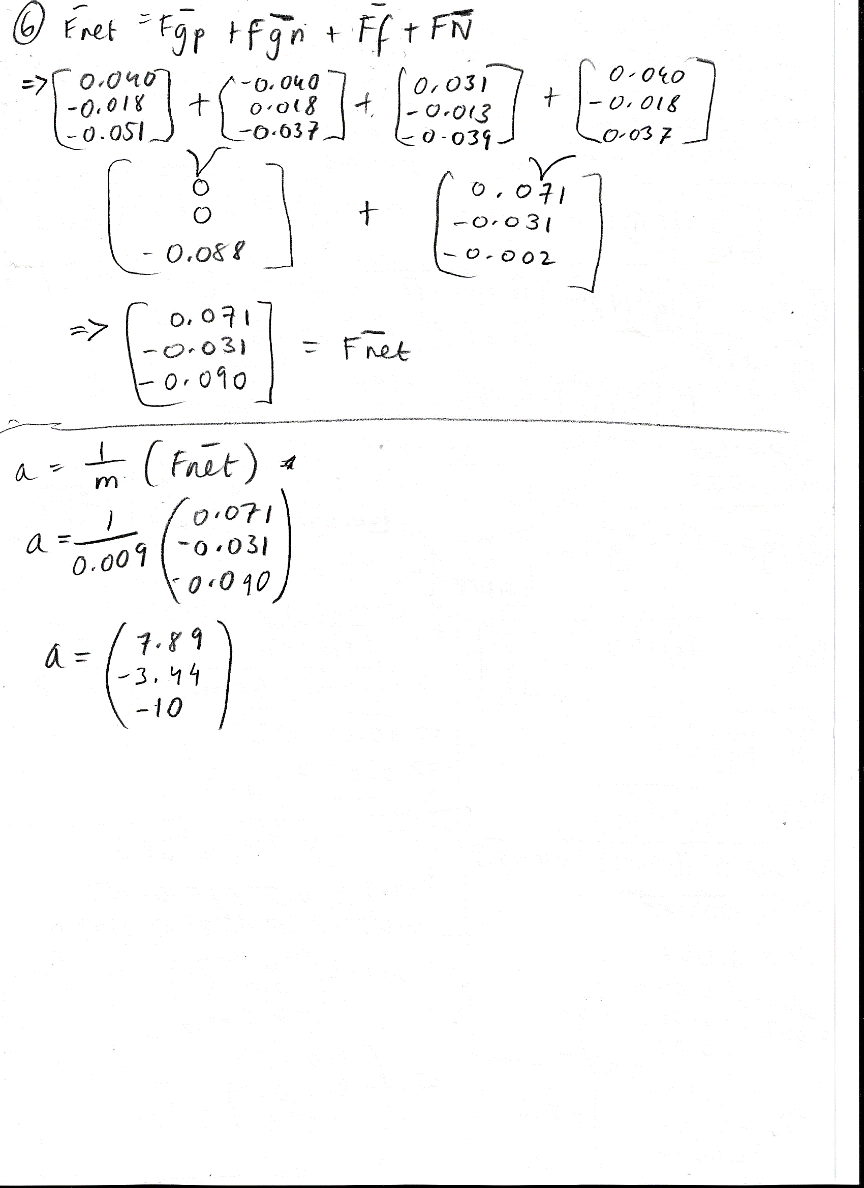 ⑥ F̄net = F̄gp + F̄gn + F̄f + F̄N
=> [0.040 -0.018 -0.051] + [-0.040 0.018 -0.037] + [0.031 -0.013 -0.039] + [0.040 -0.018 0.037]
[0 0 -0.088] + [0.071 -0.031 -0.002]
=> [0.071 -0.031 -0.090] = F̄net
a = 1/m (F̄net)
a = 1/0.009 (0.071 -0.031 -0.090)
a = (7.89 -3.44 -10)